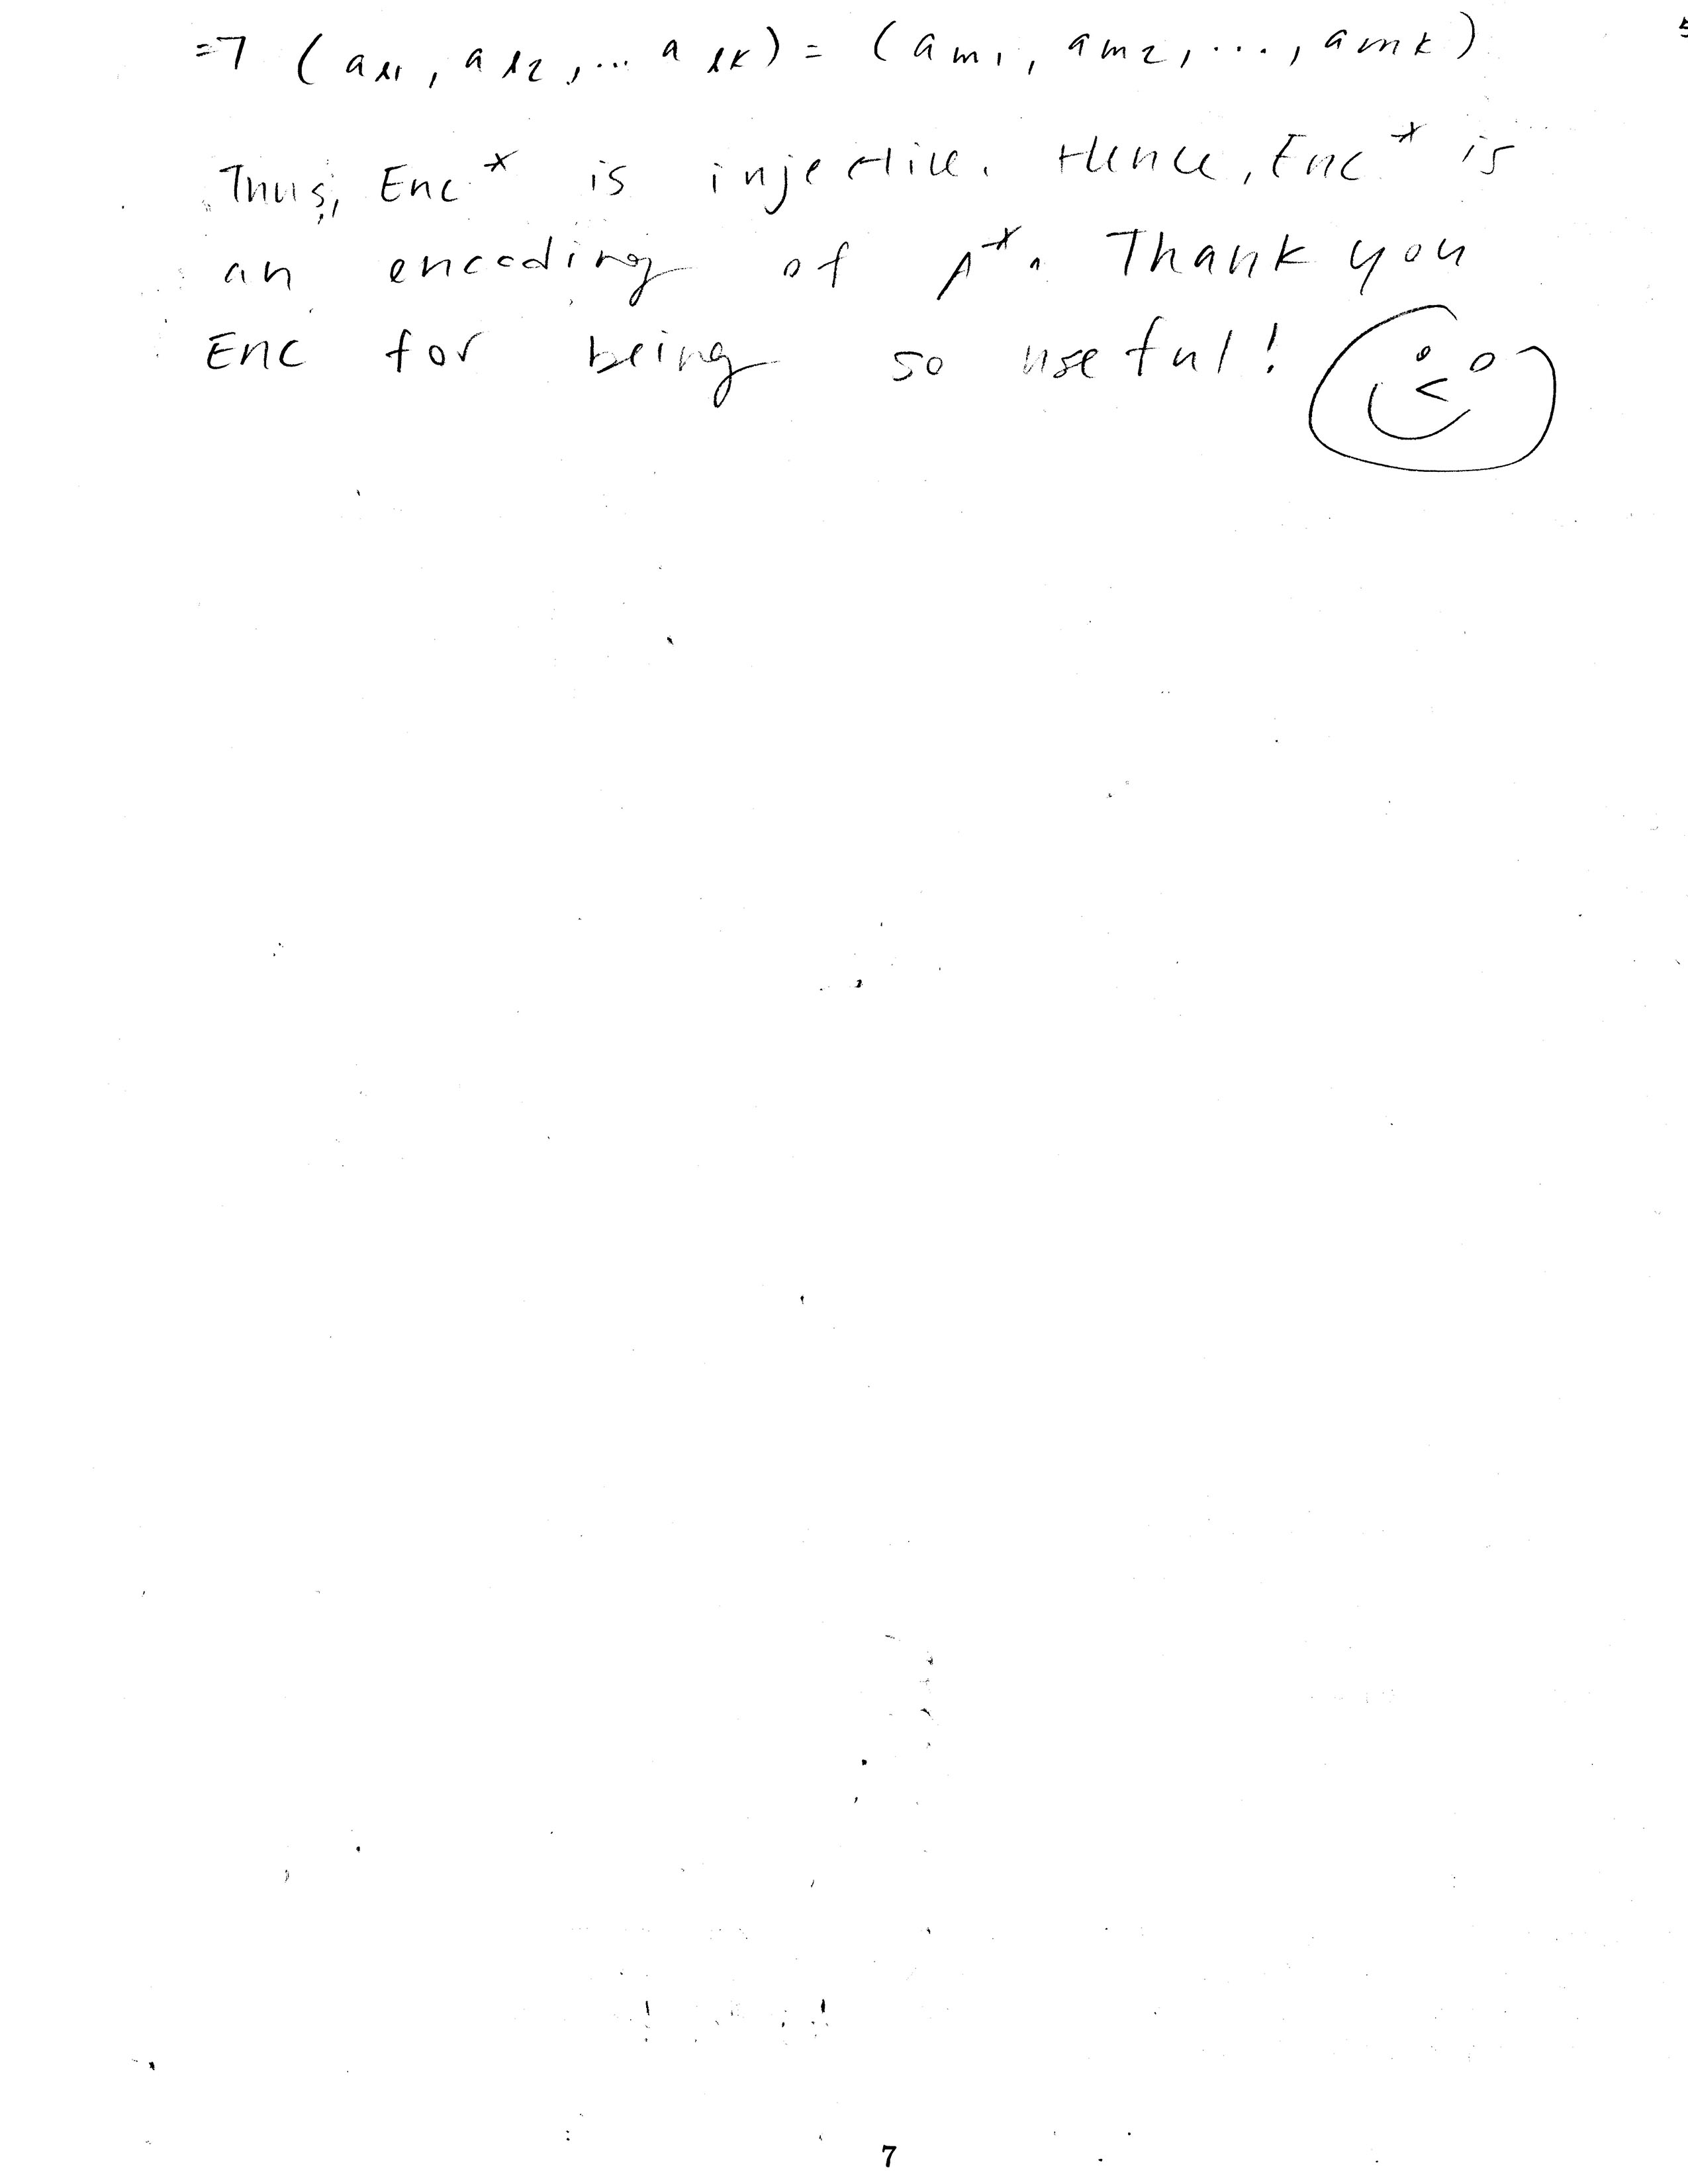 => (a_{l1}, a_{l2}, ... a_{lk}) = (a_{m1}, a_{m2}, ..., a_{mk})
Thus, Enc* is injective. Hence, Enc* is
an encoding of A*. Thank you
Enc for being so useful!
7